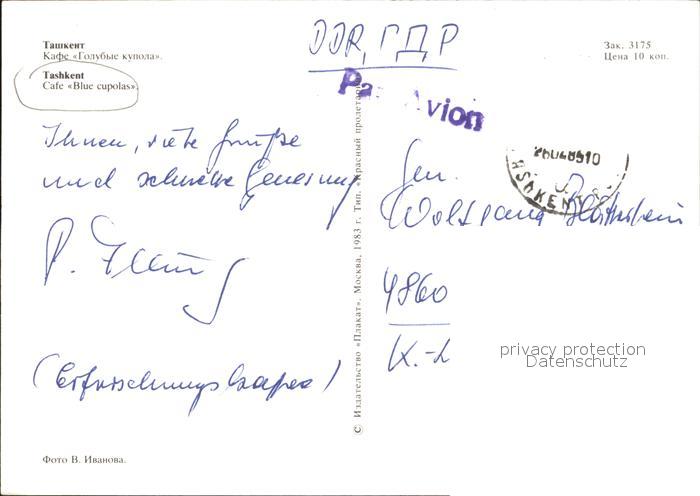 Ташкент
Кафе «Голубые купола».
Tashkent
Cafe «Blue cupolas».
DDR, ГДР
Зак. 3175
Цена 10 коп.
Par Avion
TASHKENT
Ihnen, viele Grüße
und schnelle Genesung
P.
(Erfrischungskaffee)
Gen.
Wolfgang
4860
K.-L
© Издательство «Плакат». Москва, 1983 г. Тип. «Красный пролетарий
Фото В. Иванова.
privacy protection
Datenschutz